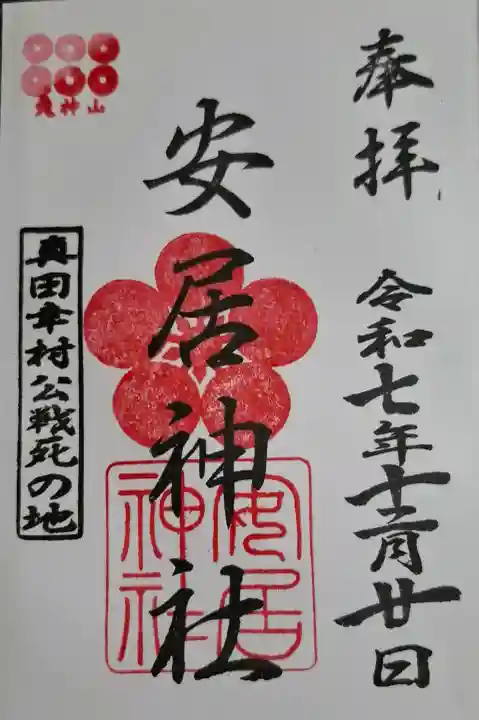 奉拝
令和七年十二月廿日
安居神社
安居神社
真田幸村公戦死の地